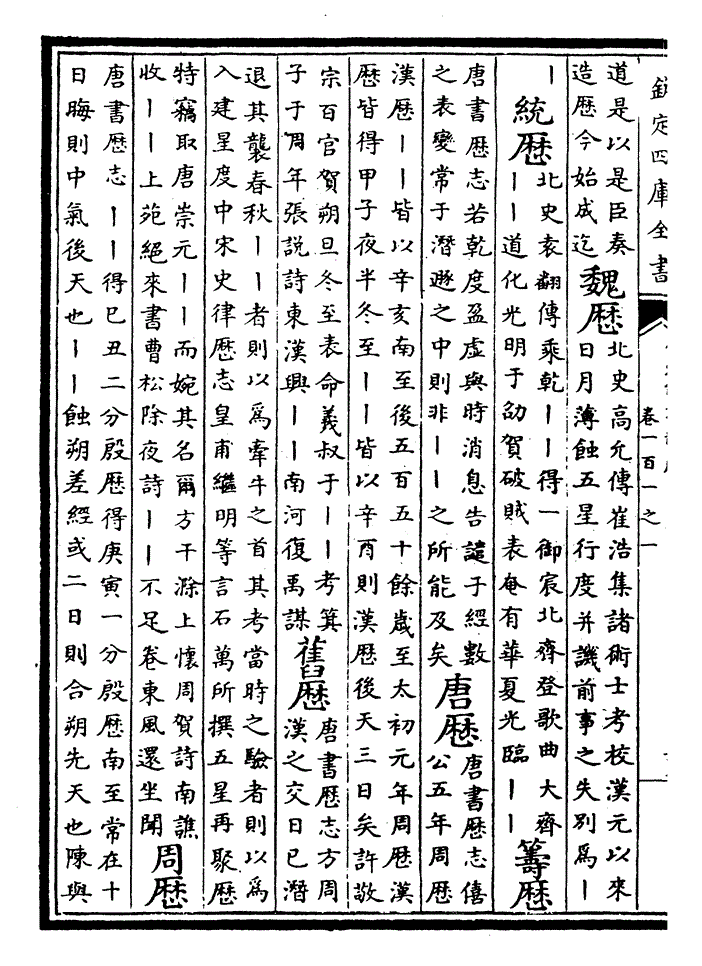 欽定四庫全書
卷一百一之一
道是以是臣奏
造歴今始成迄
魏歴
北史高允傳崔浩集諸術士考校漢元以來
日月薄蝕五星行度并譏前事之失別為丨
丨
統歴
北史袁翻傳乘乾丨丨得一御宸北齊登歌曲大齊
丨丨道化光明于劭賀破賊表奄有華夏光臨丨丨
籌歴
唐書歴志若乾度盈虛與時消息告譴于經數
之表變常于潛遯之中則非丨丨之所能及矣
唐歴
唐書歴志僖
公五年周歴
漢歴丨丨皆以辛亥南至後五百五十餘歲至太初元年周歴漢
歴皆得甲子夜半冬至丨丨皆以辛酉則漢歴後天三日矣許敬
宗百官賀朔旦冬至表命羲叔于丨丨考箕
子于周年張說詩東漢興丨丨南河復禹謀
舊歴
唐書歴志方周
漢之交日已潛
退其襲春秋丨丨者則以為牽牛之首其考當時之驗者則以為
入建星度中宋史律歴志皇甫繼明等言石萬所撰五星再聚歴
特竊取唐崇元丨丨而婉其名爾方干滁上懷周賀詩南譙
收丨丨上苑絕來書曹松除夜詩丨丨不足卷東風還坐聞
周歴
唐書歴志丨丨得已丑二分殷歴得庚寅一分殷歴南至常在十
日晦則中氣後天也丨丨蝕朔差經或二日則合朔先天也陳與